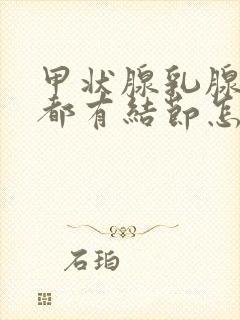 甲状腺乳腺
都有結節怎
石珀